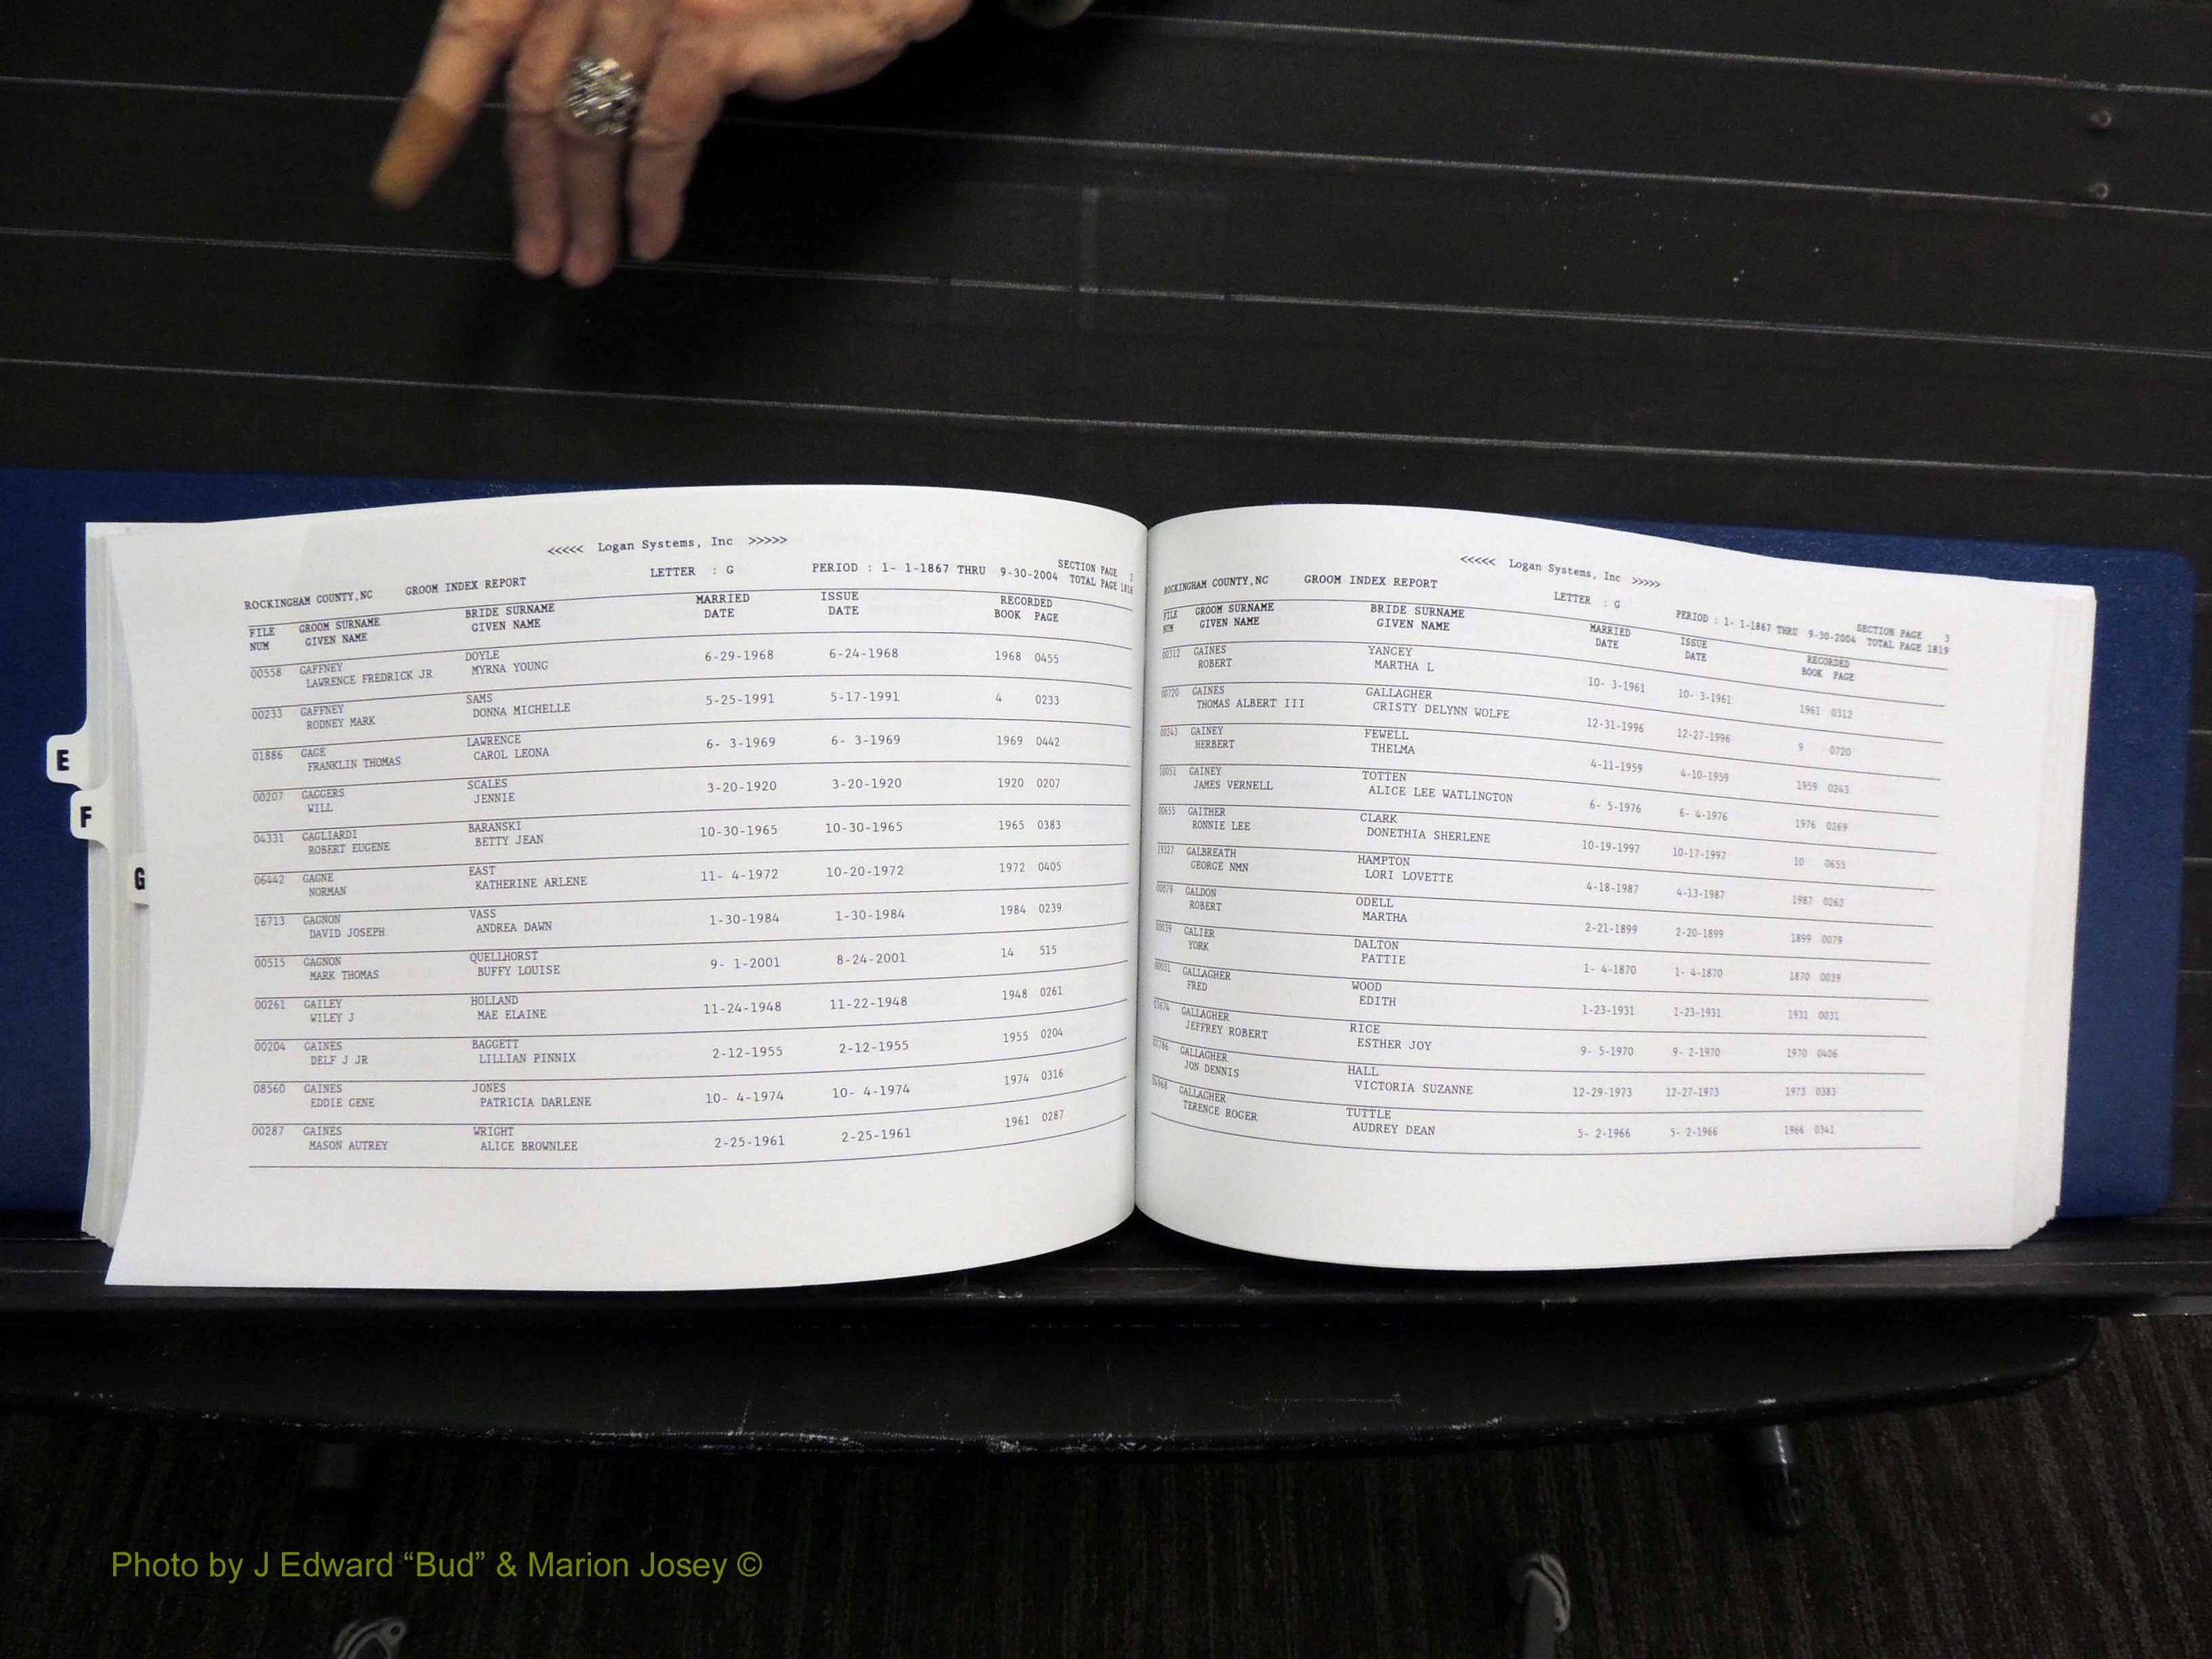 <<<<< Logan Systems, Inc >>>>>
ROCKINGHAM COUNTY,NC GROOM INDEX REPORT LETTER : G PERIOD : 1- 1-1867 THRU 9-30-2004 SECTION PAGE
TOTAL PAGE 1818
FILE GROOM SURNAME BRIDE SURNAME MARRIED ISSUE RECORDED
NUM GIVEN NAME GIVEN NAME DATE DATE BOOK PAGE
00558 GAFFNEY DOYLE 6-29-1968 6-24-1968 1968 0455
LAWRENCE FREDRICK JR MYRNA YOUNG
00233 GAFFNEY SAMS 5-25-1991 5-17-1991 4 0233
RODNEY MARK DONNA MICHELLE
01886 GAGE LAWRENCE 6- 3-1969 6- 3-1969 1969 0442
FRANKLIN THOMAS CAROL LEONA
00207 GAGGERS SCALES 3-20-1920 3-20-1920 1920 0207
WILL JENNIE
04331 GAGLIARDI BARANSKI 10-30-1965 10-30-1965 1965 0383
ROBERT EUGENE BETTY JEAN
06442 GAGNE EAST 11- 4-1972 10-20-1972 1972 0405
NORMAN KATHERINE ARLENE
16713 GAGNON VASS 1-30-1984 1-30-1984 1984 0239
DAVID JOSEPH ANDREA DAWN
00515 GAGNON QUELLHORST 9- 1-2001 8-24-2001 14 515
MARK THOMAS BUFFY LOUISE
00261 GAILEY HOLLAND 11-24-1948 11-22-1948 1948 0261
WILEY J MAE ELAINE
00204 GAINES BAGGETT 2-12-1955 2-12-1955 1955 0204
DELF J JR LILLIAN PINNIX
08560 GAINES JONES 10- 4-1974 10- 4-1974 1974 0316
EDDIE GENE PATRICIA DARLENE
00287 GAINES WRIGHT 2-25-1961 2-25-1961 1961 0287
MASON AUTREY ALICE BROWNLEE
E
F
G
<<<<< Logan Systems, Inc >>>>>
ROCKINGHAM COUNTY,NC GROOM INDEX REPORT LETTER : G PERIOD : 1- 1-1867 THRU 9-30-2004 SECTION PAGE 3
TOTAL PAGE 1819
FILE GROOM SURNAME BRIDE SURNAME MARRIED ISSUE RECORDED
NUM GIVEN NAME GIVEN NAME DATE DATE BOOK PAGE
00312 GAINES YANCEY 10- 3-1961 10- 3-1961 1961 0312
ROBERT MARTHA L
00720 GAINES GALLAGHER 12-31-1996 12-27-1996 9 0720
THOMAS ALBERT III CRISTY DELYNN WOLFE
00243 GAINEY FEWELL 4-11-1959 4-10-1959 1959 0243
HERBERT THELMA
GAINEY TOTTEN 6- 5-1976 6- 4-1976 1976 0269
JAMES VERNELL ALICE LEE WATLINGTON
00655 GAITHER CLARK 10-19-1997 10-17-1997 10 0655
RONNIE LEE DONETHIA SHERLENE
19327 GALBREATH HAMPTON 4-18-1987 4-13-1987 1987 0262
GEORGE NMN LORI LOVETTE
00079 GALDON ODELL 2-21-1899 2-20-1899 1899 0079
ROBERT MARTHA
00039 GALIER DALTON 1- 4-1870 1- 4-1870 1870 0039
YORK PATTIE
00031 GALLAGHER WOOD 1-23-1931 1-23-1931 1931 0031
FRED EDITH
GALLAGHER RICE 9- 5-1970 9- 2-1970 1970 0406
JEFFREY ROBERT ESTHER JOY
GALLAGHER HALL 12-29-1973 12-27-1973 1973 0383
JON DENNIS VICTORIA SUZANNE
GALLAGHER TUTTLE 5- 2-1966 5- 2-1966 1966 0341
TERENCE ROGER AUDREY DEAN
Photo by J Edward “Bud” & Marion Josey ©